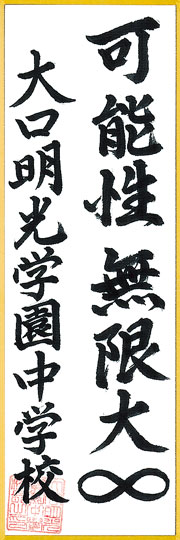 可能性 無限大∞
大口明光学園中学校